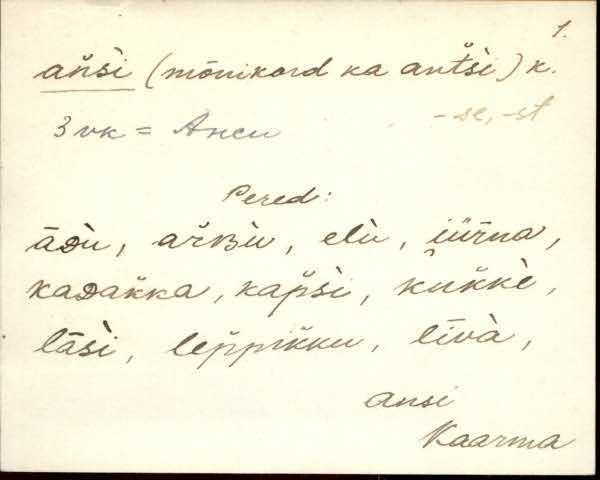 1.
añsì (mõnikord ka antšì) k.
3 vk = Анси -se, -st
Pered:
āᴅù, aȓʙìu, elù, iiȓna,
kaᴅaǩka, kap̆sì, kuk̆kè,
lāsì, lep̆pik̆ku, līvà,
ansi
Kaarma